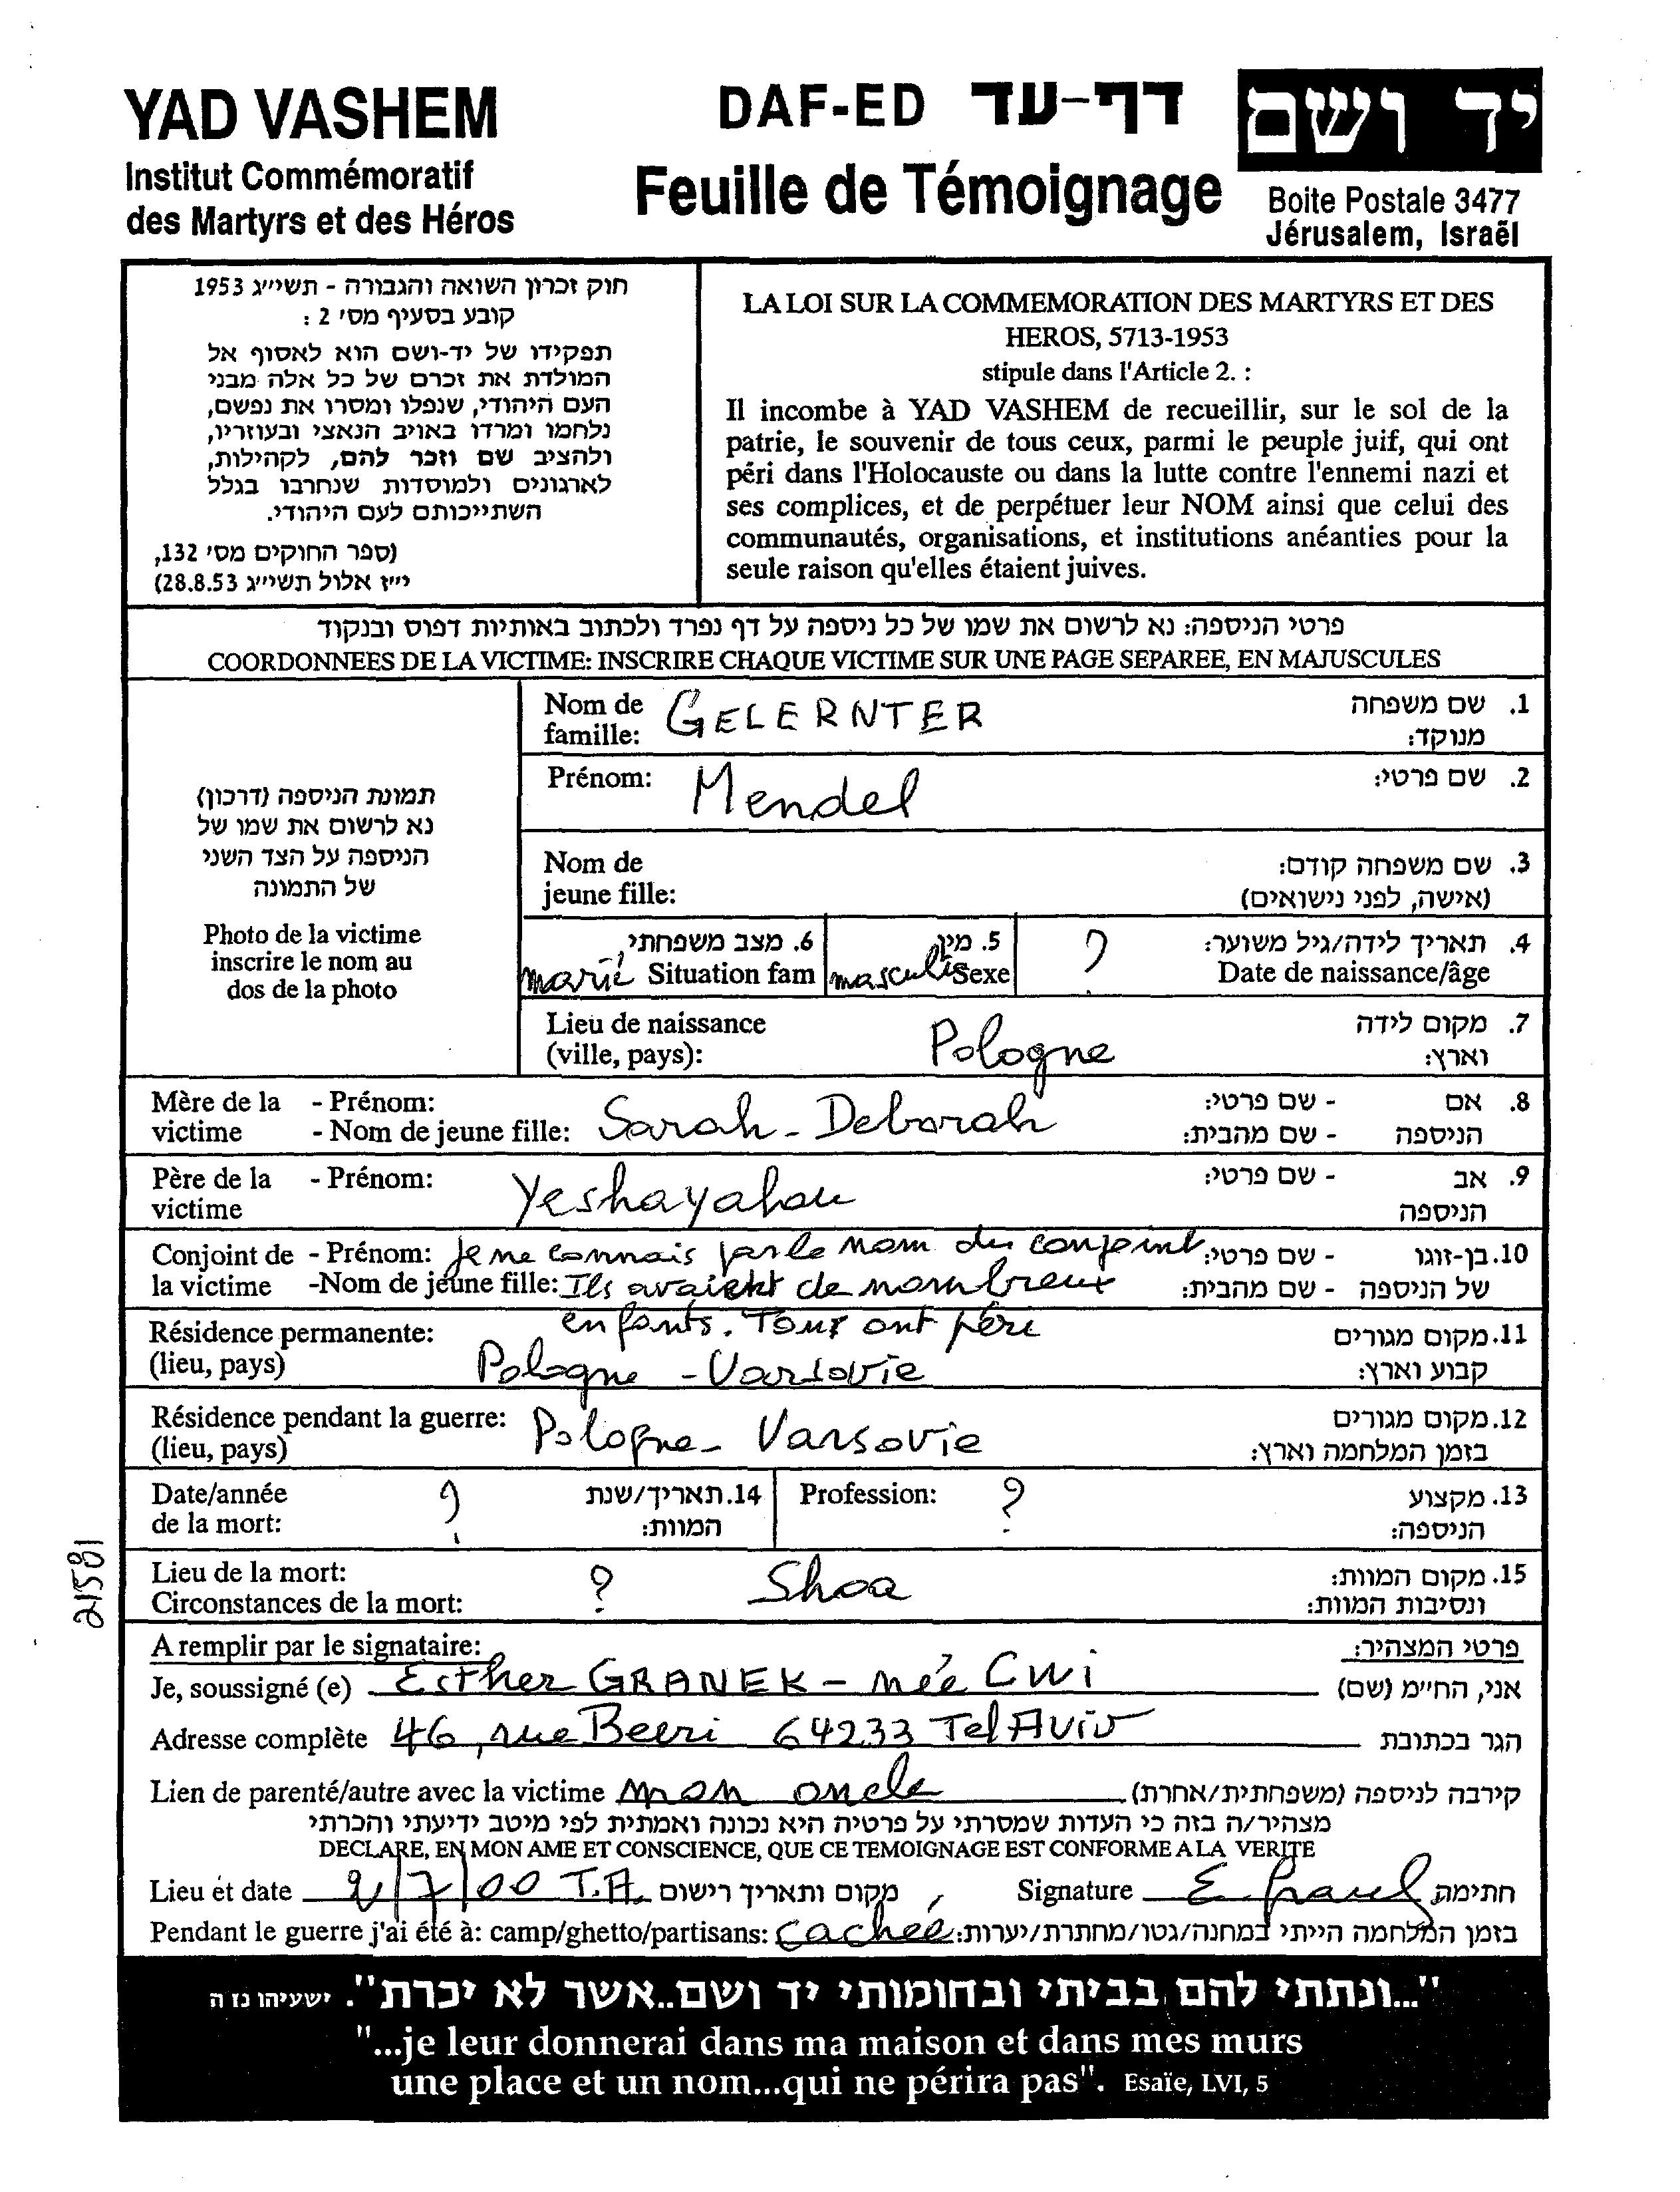 YAD VASHEM
Institut Commémoratif
des Martyrs et des Héros
DAF-ED דף-עד
Feuille de Témoignage
יד ושם
Boite Postale 3477
Jérusalem, Israël
חוק זכרון השואה והגבורה - תשי״ג 1953
קובע בסעיף מס׳ 2 :
תפקידו של יד-ושם הוא לאסוף אל
המולדת את זכרם של כל אלה מבני
העם היהודי, שנפלו ומסרו את נפשם,
נלחמו ומרדו באויב הנאצי ובעוזריו,
ולהציב שם וזכר להם, לקהילות,
לארגונים ולמוסדות שנחרבו בגלל
השתייכותם לעם היהודי.
(ספר החוקים מס׳ 132,
י״ז אלול תשי״ג 28.8.53)
LA LOI SUR LA COMMEMORATION DES MARTYRS ET DES
HEROS, 5713-1953
stipule dans l'Article 2. :
Il incombe à YAD VASHEM de recueillir, sur le sol de la
patrie, le souvenir de tous ceux, parmi le peuple juif, qui ont
péri dans l'Holocauste ou dans la lutte contre l'ennemi nazi et
ses complices, et de perpétuer leur NOM ainsi que celui des
communautés, organisations, et institutions anéanties pour la
seule raison qu'elles étaient juives.
פרטי הניספה: נא לרשום את שמו של כל ניספה על דף נפרד ולכתוב באותיות דפוס ובנקוד
COORDONNEES DE LA VICTIME: INSCRIRE CHAQUE VICTIME SUR UNE PAGE SEPAREE, EN MAJUSCULES
תמונת הניספה (דרכון)
נא לרשום את שמו של
הניספה על הצד השני
של התמונה
Photo de la victime
inscrire le nom au
dos de la photo
Nom de GELERNTER 1. שם משפחה
famille: מנוקד:
Prénom: Mendel 2. שם פרטי:
Nom de 3. שם משפחה קודם:
jeune fille: (אישה, לפני נישואים)
6. מצב משפחתי 5. מין ? 4. תאריך לידה/גיל משוער:
marié Situation fam masculin Sexe Date de naissance/âge
Lieu de naissance Pologne 7. מקום לידה
(ville, pays): וארץ:
Mère de la - Prénom: - שם פרטי: 8. אם
victime - Nom de jeune fille: Sarah - Deborah - שם מהבית: הניספה
Père de la - Prénom: Yeshayahou - שם פרטי: 9. אב
victime הניספה
Conjoint de - Prénom: je ne connais pas le nom du conjoint - שם פרטי: 10. בן-זוגו
la victime -Nom de jeune fille: Ils avaient de nombreux - שם מהבית: של הניספה
enfants. Tous ont péri
Résidence permanente: 11. מקום מגורים
(lieu, pays) Pologne - Varsovie קבוע וארץ:
Résidence pendant la guerre: Pologne - Varsovie 12. מקום מגורים
(lieu, pays) בזמן המלחמה וארץ:
Date/année ? 14. תאריך/שנת Profession: ? 13. מקצוע
de la mort: המוות: הניספה:
Lieu de la mort: ? Shoa 15. מקום המוות:
Circonstances de la mort: ונסיבות המוות:
21581
A remplir par le signataire: פרטי המצהיר:
Je, soussigné (e) Esther GRANEK - née CWI אני, החי״מ (שם)
Adresse complète 46, rue Beeri 64233 Tel Aviv הגר בכתובת
Lien de parenté/autre avec la victime mon oncle קירבה לניספה (משפחתית/אחרת)
מצהיר/ה בזה כי העדות שמסרתי על פרטיה היא נכונה ואמתית לפי מיטב ידיעתי והכרתי
DECLARE, EN MON AME ET CONSCIENCE, QUE CE TEMOIGNAGE EST CONFORME A LA VERITE
Lieu et date 2/7/00 T.A. מקום ותאריך רישום Signature חתימה
Pendant le guerre j'ai été à: camp/ghetto/partisans: Cachée בזמן המלחמה הייתי במחנה/גטו/מחתרת/יערות:
"...ונתתי להם בביתי ובחומותי יד ושם..אשר לא יכרת". ישעיהו נו ה
"...je leur donnerai dans ma maison et dans mes murs
une place et un nom...qui ne périra pas". Esaïe, LVI, 5